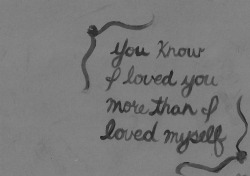 You Know
I loved you
more than I
loved myself